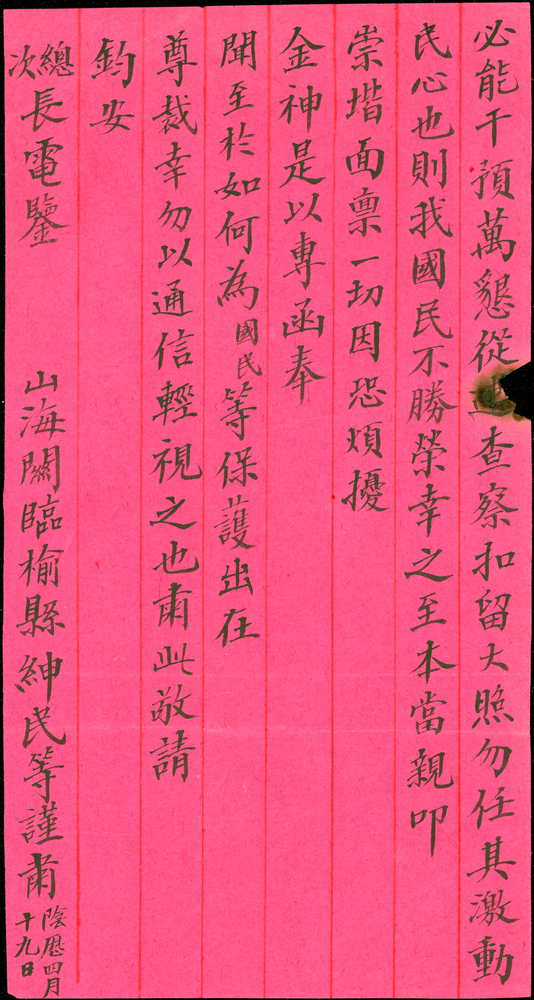 必能干預萬懇從查察扣留大照勿任其激動
民心也則我國民不勝榮幸之至本當親叩
崇堦面禀一切因恐煩擾
金神是以專函奉
聞至於如何為國民等保護出在
尊裁幸勿以通信輕視之也肅此敬請
鈞安
總次長電鑒 山海關臨榆縣紳民等謹肅 陰曆四月十九日